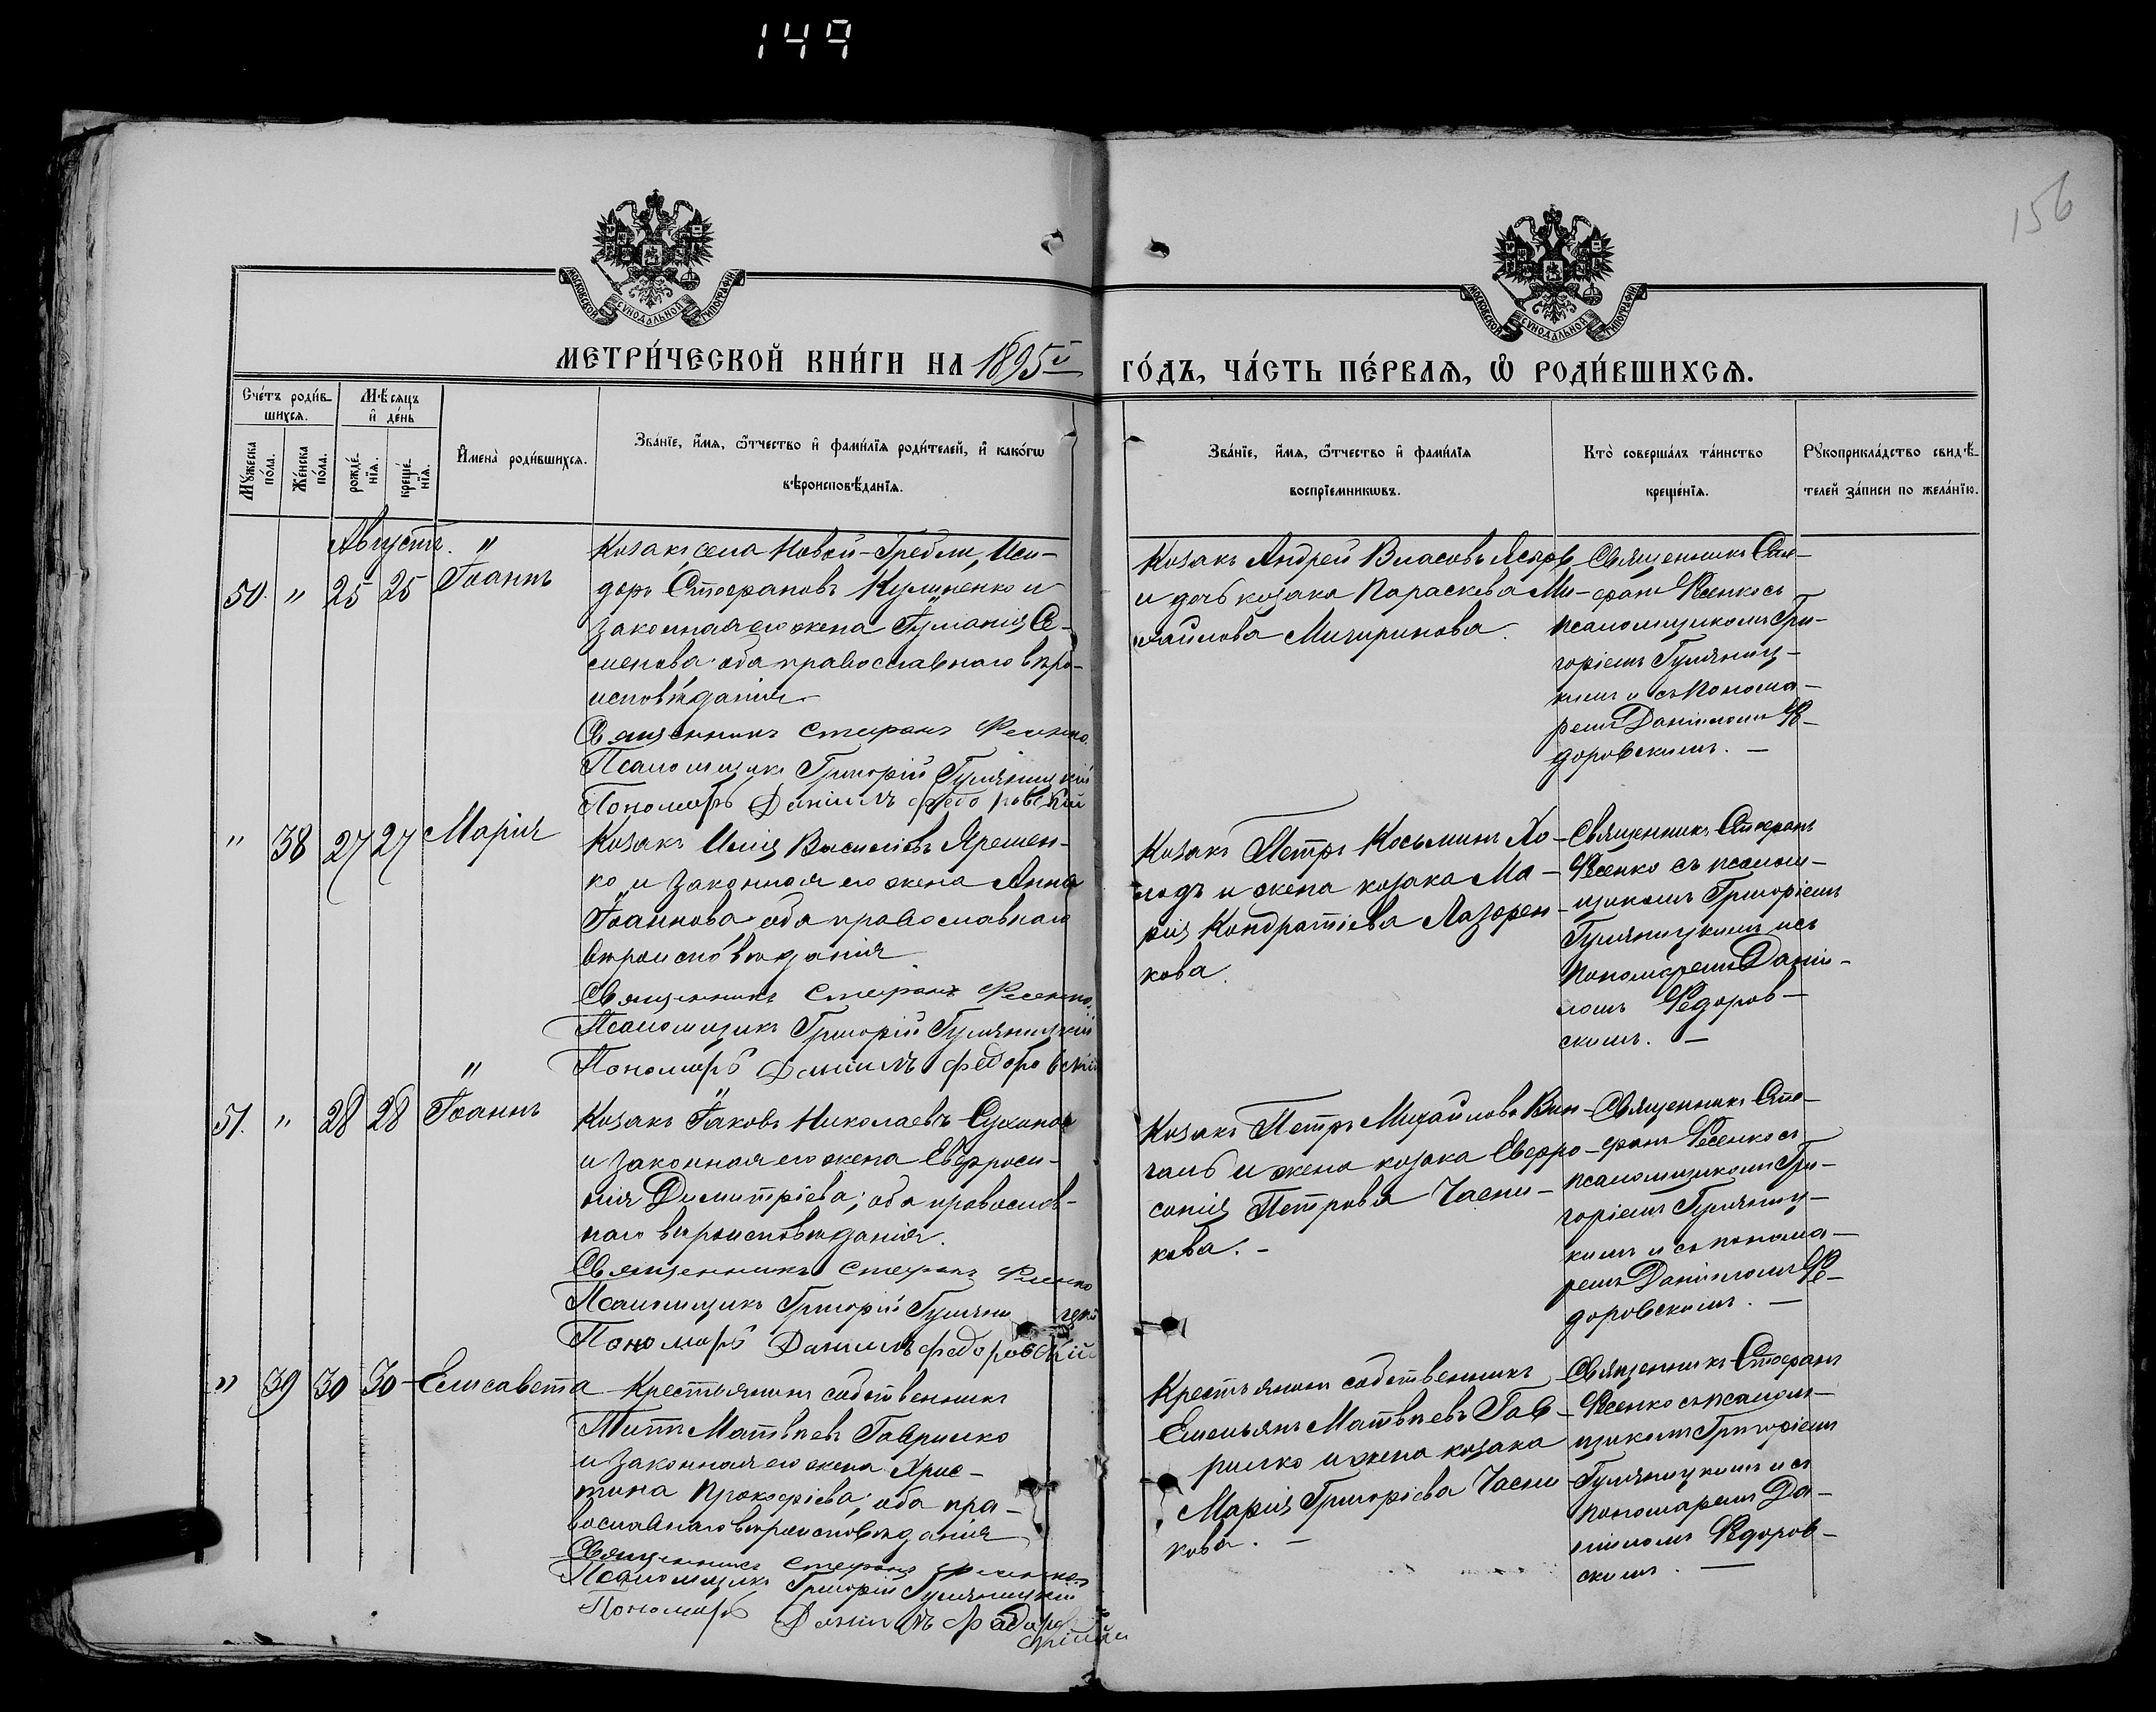 149
156
МОСКОВСКОЙ СѴНОДАЛЬНОЙ ТИПОГРАФИИ
МОСКОВСКОЙ СѴНОДАЛЬНОЙ ТИПОГРАФИИ
МЕТРИ́ЧЕСКОЙ КНИ́ГИ НА 1895й ГО́ДЪ, ЧА́СТЬ ПЕ́РВАЯ, Ѡ҆ РОДИ́ВШИХСЯ.
Сче́тъ роди́в-
шихся.
Мѣ́сяцъ
и҆ де́нь
Му́жеска
по́ла.
Же́нска
по́ла.
рожде́-
нїя.
креще́-
нїя.
И҆мена̀ роди́вшихся.
Зва́нїе, и҆́мя, ѻ҆́тчество и҆ фами́лїя роди́телей, и҆ како́гѡ
вѣроисповѣ́данїя.
Зва́нїе, и҆́мя, ѻ҆́тчество и҆ фами́лїя
воспрїемникѡвъ.
Кто̀ соверша́лъ та́инство
креще́нїя.
Рꙋкоприкла́дство свидѣ́-
телей за́писи по жела́нїю.
Августъ.
50. " 25 25 Іоаннъ
Козакъ села Новой-Гребли, Иси-
доръ Стефановъ Кулиненко и
законная его жена Іуліанія Се-
менова оба православнаго вѣро-
исповѣданія
Священникъ Стефанъ Фесенко.
Псаломщикъ Григорій Гуляницкій
Пономарь Даніилъ Федоровскій
Козакъ Андрей Власовъ
и дочь козака Параскева Ми-
хайлова Мичуринова.
Священникъ Сте-
фанъ Фесенко съ
псаломщикомъ Гри-
горіемъ Гуляниц-
кимъ и съ понома-
ремъ Даніиломъ Фе-
доровскимъ. —
" 38 27 27 Марія
Козакъ Илія Василіевъ Яремен-
ко и законная его жена Анна
Іоаннова оба православнаго
вѣроисповѣданія
Священникъ Стефанъ Фесенко.
Псаломщикъ Григорій Гуляницкій
Пономарь Даніилъ Федоровскій
Козакъ Петръ Косьминъ Хо-
лодъ и жена козака Ма-
рія Кондратіева Лазорен-
кова.
Священникъ Стефанъ
Фесенко съ псалом-
щикомъ Григоріемъ
Гуляницкимъ и съ
пономаремъ Даніи-
ломъ Федоров-
скимъ. —
51. " 28 28 Іоаннъ
Козакъ Іаковъ Николаевъ
и законная его жена Евфроси-
нія Димитріева; оба православ-
наго вѣроисповѣданія.
Священникъ Стефанъ Фесенко
Псаломщикъ Григорій Гуляницкій
Пономарь Даніилъ Федоровскій
Козакъ Петръ Михайловъ
и жена козака Евфро-
синія Петрова Часни-
кова. -
Священникъ Сте-
фанъ Фесенко съ
псаломщикомъ Гри-
горіемъ Гуляниц-
кимъ и съ понома-
ремъ Даніиломъ Фе-
доровскимъ. —
" 39 30 30 Елисавета
Крестьянинъ собственникъ
Титъ Матвѣевъ Гаврилко
и законная его жена Хрис-
тина Прокофіева, оба пра-
вославнаго вѣроисповѣданія
Священникъ Стефанъ Фесенко.
Псаломщикъ Григорій Гуляницкій
Пономарь Даніилъ Федоровскій
Крестьянинъ собственникъ
Емельянъ Матвѣевъ Гав-
рилко и жена козака
Марія Григоріева Часни-
кова. —
Священникъ Стефанъ
Фесенко съ псалом-
щикомъ Григоріемъ
Гуляницкимъ и съ
пономаремъ Да-
ніиломъ Федоров-
скимъ. —